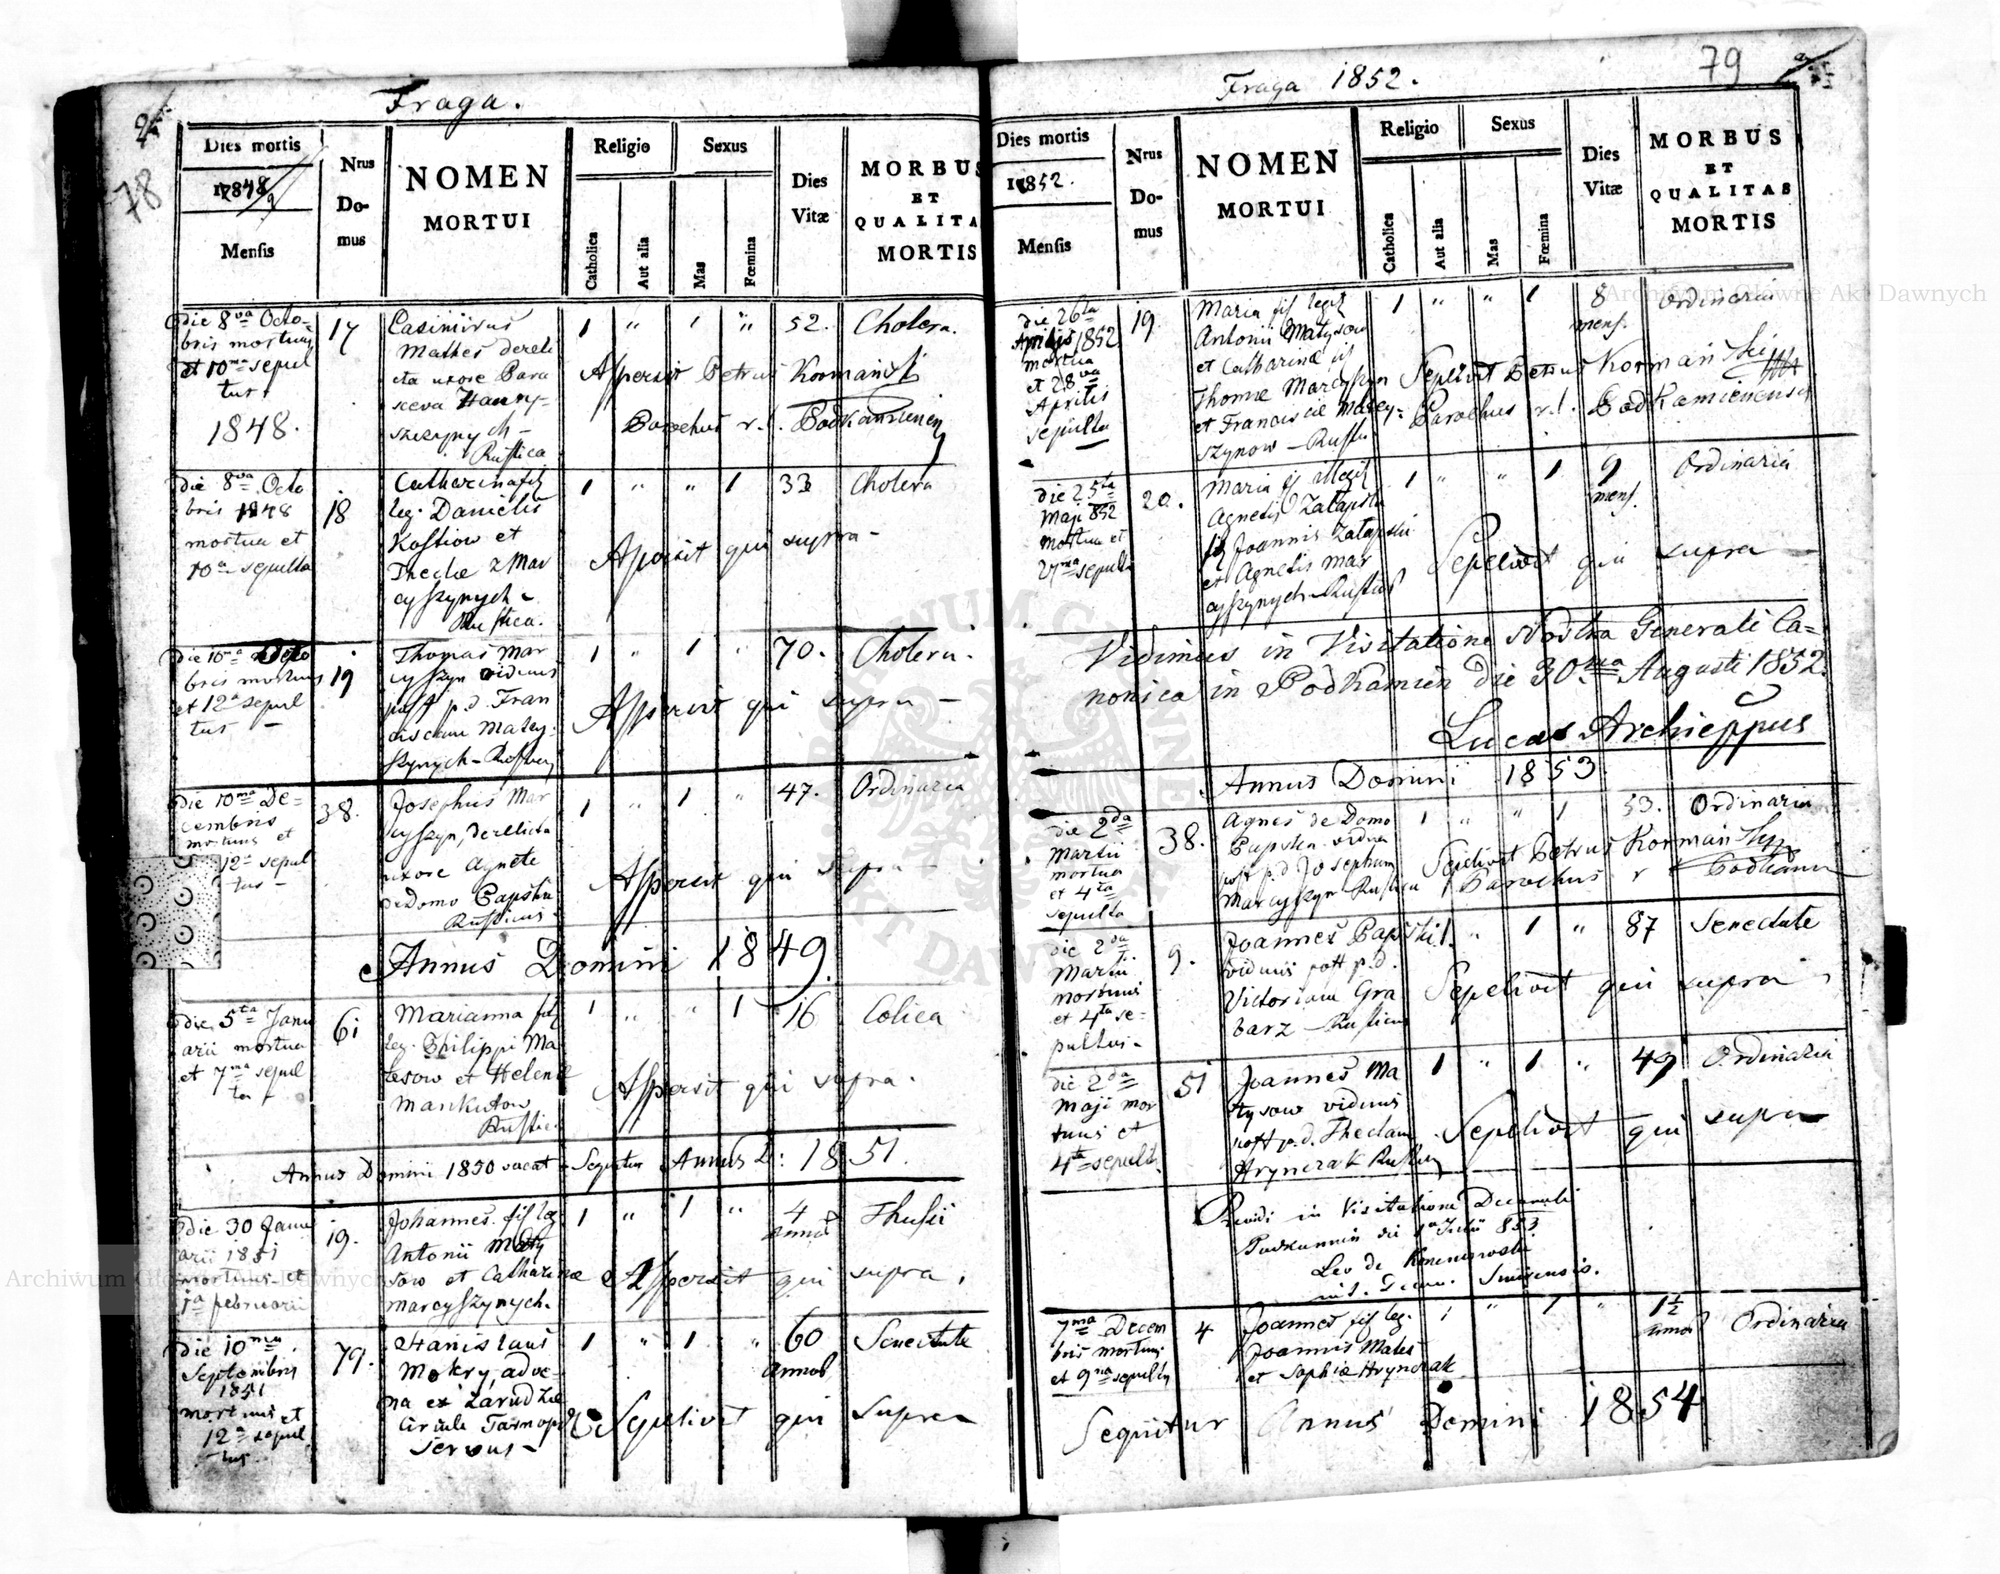 Fraga.
78
Dies mortis
Nrus Domus
NOMEN MORTUI
Religio
Sexus
Dies Vitæ
MORBUS ET QUALITA MORTIS
1848/9
Mensis
Catholica
Aut alia
Mas
Fœmina
die 8va Octo=
bris mortuus
et 10ma sepul
tus
1848.
17
Casimirus
Mathes dereli
cta uxore Para
sceva Hanny=
szczynych –
Rustica
1 " 1 " 52. Cholera.
Aspersit Petrus Kormański
Parochus r. l. Podkamien
die 8va Octo
bris 1848
mortua et
10a sepulta
18
Catharina fil
leg. Danielis
Kostiow et
Theclæ Mar
cyszynych –
Rustica.
1 " " 1 33 Cholera
Aspersit qui supra –
die 10ma Octo
bris mortuus
et 12a sepul
tus –
19
Thomas Mar
cyszyn viduus
post p.d. Fran
ciscam Matey.
szynych –
1 " 1 " 70. Cholera.
Aspersit qui supra –
die 10ma De=
cembris
mortuus et
12a sepul
tus –
38.
Josephus Mar
cyszyn, derelicta
uxore Agnete
de Domo Papska
Rusticus
1 " 1 " 47. Ordinaria
Aspersit qui supra –
Annus Domini 1849.
die 5ta Janu
arii mortua
et 7ma sepul
ta
61
Marianna fil
leg. Philippi Ma
tesow et Helenæ
Mankutow
1 " " 1 16 Colica
Aspersit qui supra.
Annus Domini 1850 vacat – Sequitur Annus D: 1851.
die 30 Janu
arii 1851
mortuus et
1a februarii
19.
Johannes fil leg
Antonii Maty
sow et Catharinæ
Marcyszynych.
1 " 1 " 4 annos
Aspersit qui supra.
die 10ma
Septembris
1851
mortuus et
12a sepul
tus
79.
Stanislaus
Mokry, adve=
na ex Zarudzie
Circuli Tarnopo
Servus –
1 " 1 " 60 annos Senectute
Sepelivit qui supra
Fraga 1852.
79
Dies mortis
Nrus Domus
NOMEN MORTUI
Religio
Sexus
Dies Vitæ
MORBUS ET QUALITAS MORTIS
1852.
Mensis
Catholica
Aut alia
Mas
Fœmina
die 26ta
Aprilis 1852
mortua
et 28va
Aprilis
sepulta
19.
Maria fil legit
Antonii Matysow
et Catharinæ fil
Thomæ Marcyszyn
et Franciscæ Matey=
szynow –
1 " " 1 8 mens. Ordinaria
Sepelivit Petrus Kormański
Parochus r. l. Podkamienensis
die 25ta
Maji 852
mortua et
27ma sepulta
20.
Maria fil illegit
Agnetis Zatapska
fil Joannis Zatapski
et Agnetis Mar
cyszynych –
1 " " 1 9 mens. Ordinaria
Sepelivit qui supra –
Vidimus in Visitatione Nostra Generali Ca=
nonica in Podkamien die 30ma Augusti 1852.
Lucas Archieppus
Annus Domini 1853.
die 2da
Martii
mortua
et 4ta
sepulta
38.
Agnes de Domo
Papska vidua
post p.d Josephum
Marcyszyn Rustica
1 " " 1 53. Ordinaria
Sepelivit Petrus Kormański
Parochus r Podkam
die 2da
Martii
mortuus
et 4ta se=
pultus –
9.
Joannes Papski
viduus post p.d.
Victoriam Gra
barz – Rusticus
1. " 1 " 87 Senectute
Sepelivit qui supra
die 2da
Maji mor
tuus et
4ta sepult
51
Joannes Ma
tysow viduus
post p.d. Theclam
Hrynczak
1 " 1 " 49 Ordinaria
Sepelivit qui supra
in Visitatione Decanali
die 1a Julii 853
Leo de
7ma Decem
bris mortuus
et 9na sepultus
4
Joannes fil leg.
Joannis Mates
et Sophiæ Hrynczak
1 " 1 " 1½ annos Ordinaria
Sequitur Annus Domini 1854
Archiwum Główne Akt Dawnych
Archiwum Główne Akt Dawnych
ARCHIWUM GŁÓWNE AKT DAWNYCH